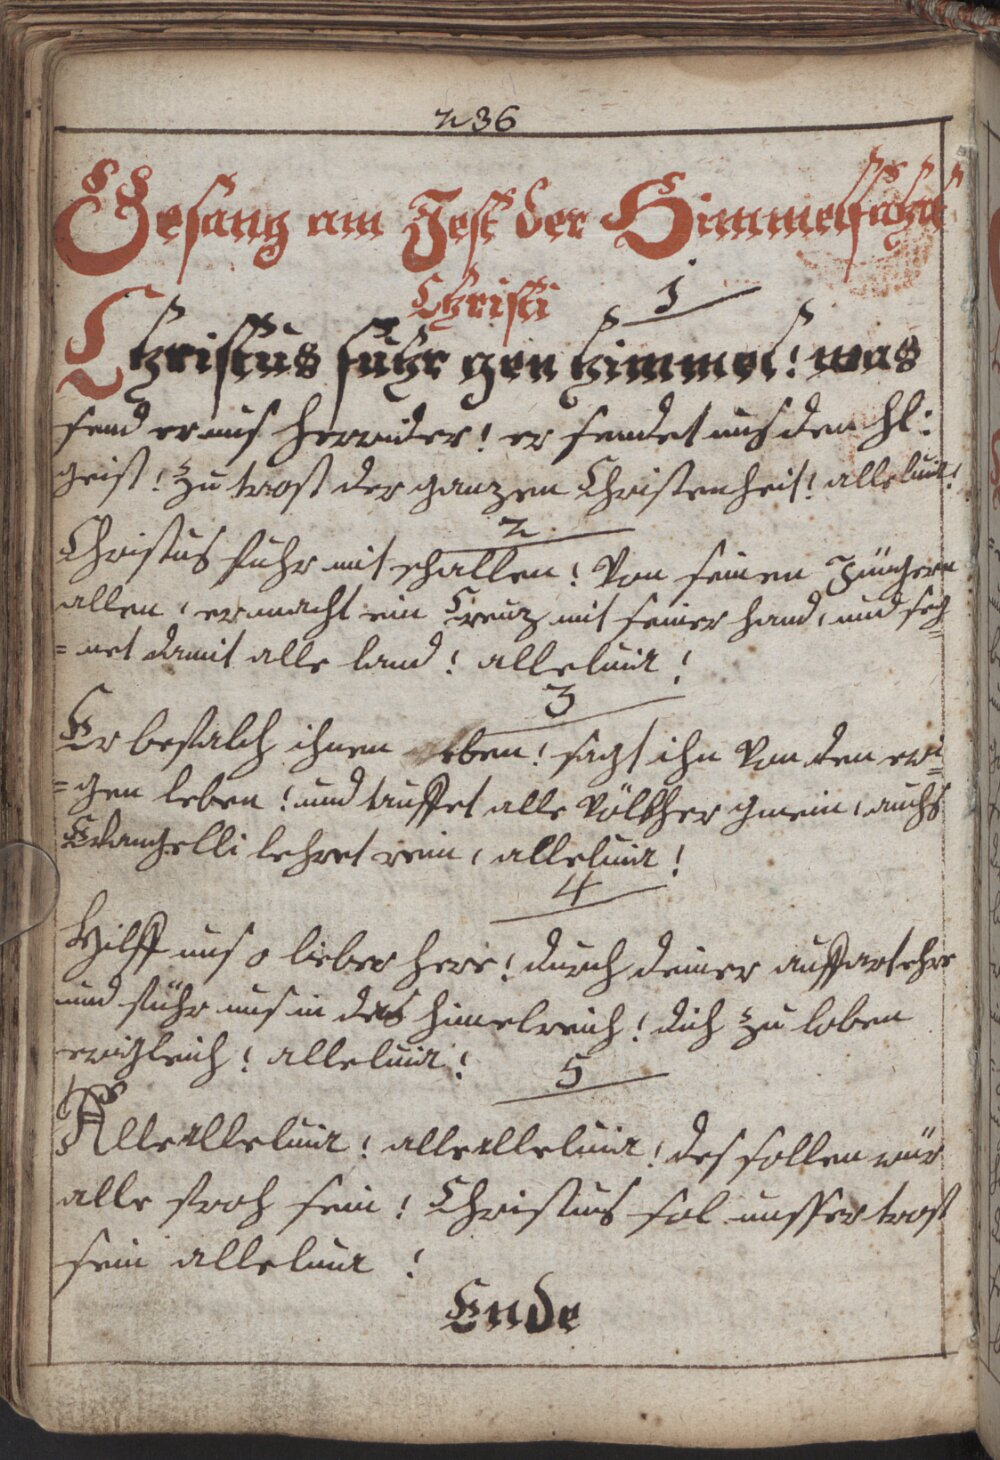 236
Gesang am Fest der Himmelfahrt
Christi
1
Christus fuhr gen himmel! was
send er uns herwider! er sendet uns den hl:
geist! zu trost der ganzen Christenheit! alleluia!
2
Christus fuhr mit schallen! Von seinen Jüngern
allen, er macht ein Creuz mit seiner hand, und seg
=net damit alle land! alleluia!
3
Er befalch ihnen eben! sagt ihn Von den ewi=
=gen leben! und tauffet alle Völkher gmein, auchs
Evangelli lehret rein, alleluia!
4
Hilff uns o lieber herr! durch deiner auffart ehre
und führ uns in das himelreich! dich zu loben
ewigleich! alleluia!
5
Allealleluia! allealleluia! des sollen wür
alle froh sein! Christus sol unsser trost
sein alleluia!
Ende